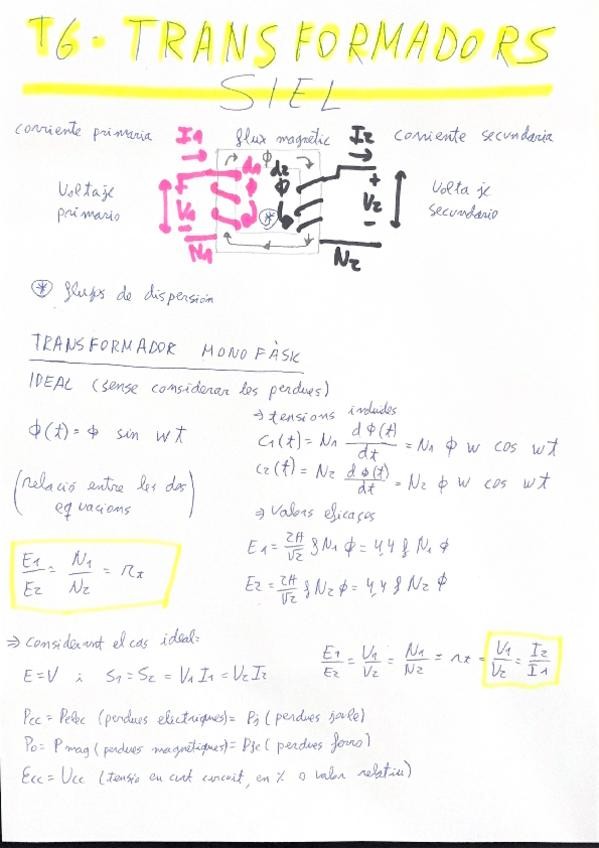 T6 - TRANSFORMADORS
SIEL
corriente primaria I1 flux magnètic I2 corriente secundaria
ϕ
d1 d2
Voltaje primario + V1 - + V2 - Voltaje secundario
N1 N2
* flujos de dispersión
TRANSFORMADOR MONOFÀSIC
IDEAL (sense considerar les perdues)
ϕ(t) = ϕ sin wt
⇒ tensions induides
e1(t) = N1 dϕ(t)/dt = N1 ϕ w cos wt
e2(t) = N2 dϕ(t)/dt = N2 ϕ w cos wt
(relació entre les dos equacions)
⇒ Valors eficaços
E1 = 2π/√2 f N1 ϕ = 4,4 f N1 ϕ
E2 = 2π/√2 f N2 ϕ = 4,4 f N2 ϕ
E1/E2 = N1/N2 = rt
⇒ Considerant el cas ideal:
E = V i S1 = S2 = V1 I1 = V2 I2
E1/E2 = V1/V2 = N1/N2 = rt = V1/V2 = I2/I1
Pcc = Pelec (perdues electriques) = Pj (perdues joule)
Po = Pmag (perdues magnètiques) = Pfe (perdues ferro)
Ecc = Ucc (tensio en curt circuit, en % o valor relatiu)